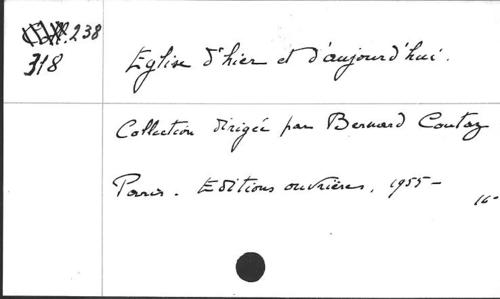 238
318
Eglise d'hier et d'aujourd'hui.
Collection dirigée par Bernard Coutaz
Paris. Editions ouvrières, 1955-
16°